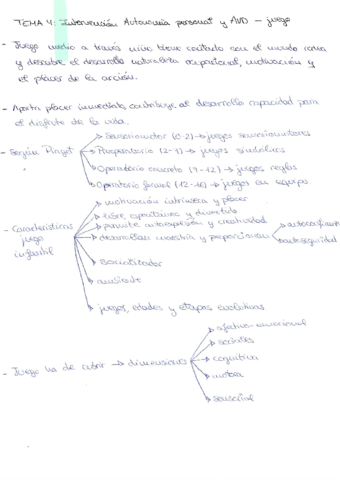 TEMA 4: Intervención Autonomía personal y AVD - juego
- Juego medio a través niño tiene contacto con el mundo
y descubre el desarrollo motivación y
el placer de la acción.
- Aporta placer inmediato, contribuye al desarrollo capacidad para
el disfrute de la vida.
- Según Piaget
Sensoriomotor (0-2) → juegos sensoriomotores
Preoperatorio (2-7) → juegos simbólicos
Operatorio concreto (7-12) → juegos reglas
Operatorio formal (12-16) → juegos en equipo.
- Características juego infantil
motivación intrínseca y placer
libre, espontáneo y divertido
permite autoexpresión y creatividad
desarrollan maestría y proporcionan
autoconfianza
autoseguridad
socializador
juegos, edades y etapas evolutivas.
- Juego ha de cubrir → dimensiones
afectivo-emocional
sociales
cognitiva
motora
sensorial